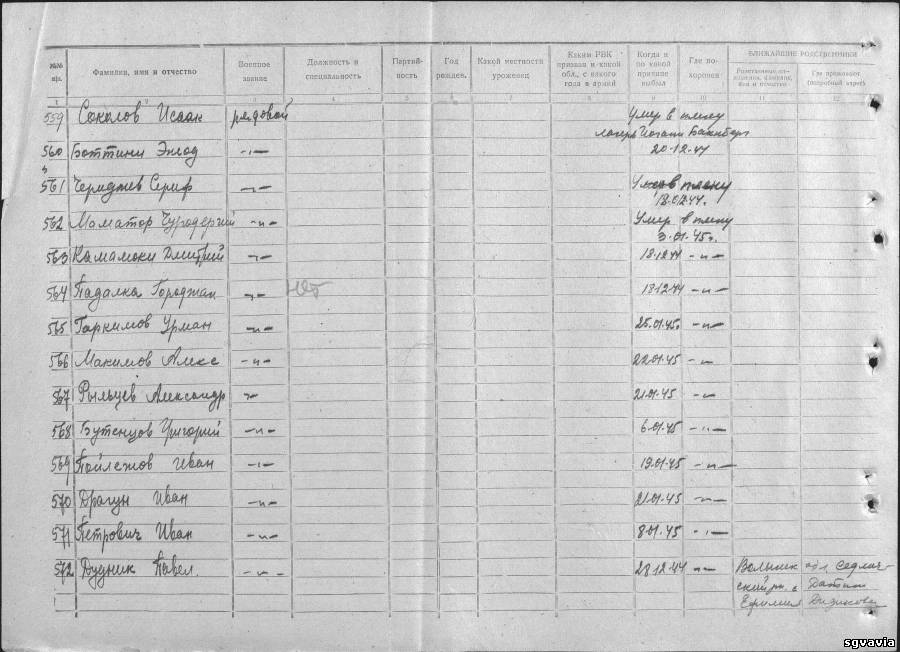 №№ п/п. Фамилия, имя и отчество Военное звание Должность и специальность Партийность Год рожден. Какой местности уроженец Каким РВК призван и какой обл., с какого года в армии Когда и по какой причине выбыл Где похоронен БЛИЖАЙШИЕ РОДСТВЕННИКИ
Где проживают (подробный адрес)
559 Соколов Исаак рядовой Умер в плену
лагерь
20.12.44
560 Боттини —"—
561 Сериф —"— Умер в плену
18.02.44.
562 Маматор —"— Умер в плену
3.01.45г.
563 Камамоки Дмитрий —"— 18.12.44 —"—
564 Падалка Городжан —"— Нет 18.12.44 —"—
565 Гаркимов Урман —"— 25.01.45 —"—
566 Макимов Алекс —"— 22.01.45 —"—
567 Рыльцев Александр —"— 21.01.45 —"—
568 Бутенцов Григорий —"— 6.01.45 —"—
569 Пойлежов Иван —"— 19.01.45 —"—
570 Драгун Иван —"— 21.01.45 —"—
571 Петрович Иван —"— 8.01.45 —"—
572 Дудник Павел. —"— 28.12.44 —"— Волынск обл
с
Ефимия
sgvavia